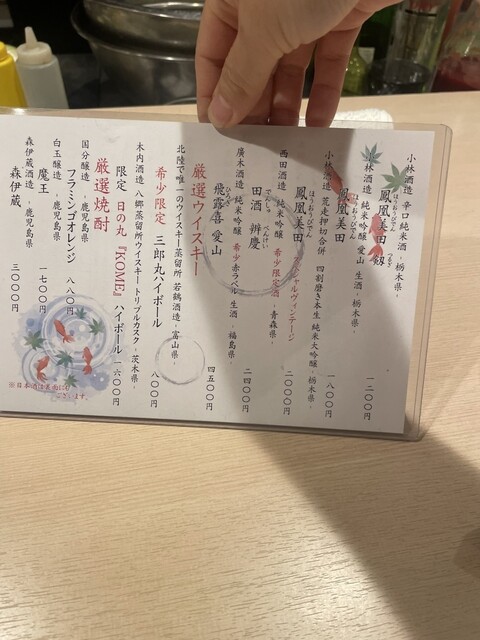 小林酒造 辛口純米酒 - 栃木県 -
鳳凰美田 剱
ほうおうびでん つるぎ
一二〇〇円
小林酒造 純米吟醸 愛山 生酒 - 栃木県 -
鳳凰美田
ほうおうびでん
一八〇〇円
小林酒造 荒走押切合併 四割磨き本生 純米大吟醸 - 栃木県 -
鳳凰美田
ほうおうびでん
シャルヴィンテージ
二〇〇〇円
西田酒造 純米吟醸 希少限定酒 - 青森県 -
田酒 辨慶
でんしゅ べんけい
二四〇〇円
廣木酒造 純米吟醸 希少赤ラベル 生酒 - 福島県 -
飛露喜 愛山
ひろき
四五〇〇円
厳選ウイスキー
北陸で唯一のウイスキー蒸留所 若鶴酒造 - 富山県 -
希少限定 三郎丸ハイボール
八〇〇円
木内酒造 八郷蒸留所ウイスキートリプルカスク - 茨木県 -
限定 日の丸『KOME』ハイボール
一六〇〇円
厳選焼酎
国分醸造 - 鹿児島県
フラミンゴオレンジ 八八〇円
白玉醸造 - 鹿児島県
魔王 一七〇〇円
森伊蔵酒造 - 鹿児島県
森伊蔵 三〇〇〇円
※日本酒は裏面にも
ございます。